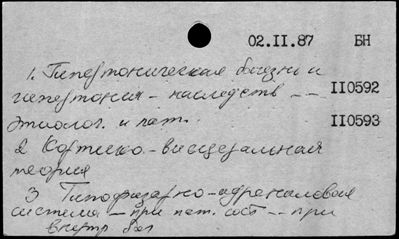 02.II.87 БН
1. Гипертоническая болезнь и
гипертония - наследств -- II0592
этиолог. и пат. II0593
2 Кортико-висцеральная
теория
3 Гипофизарно-адреналовая
система - при пат. сост - при
внутр бол